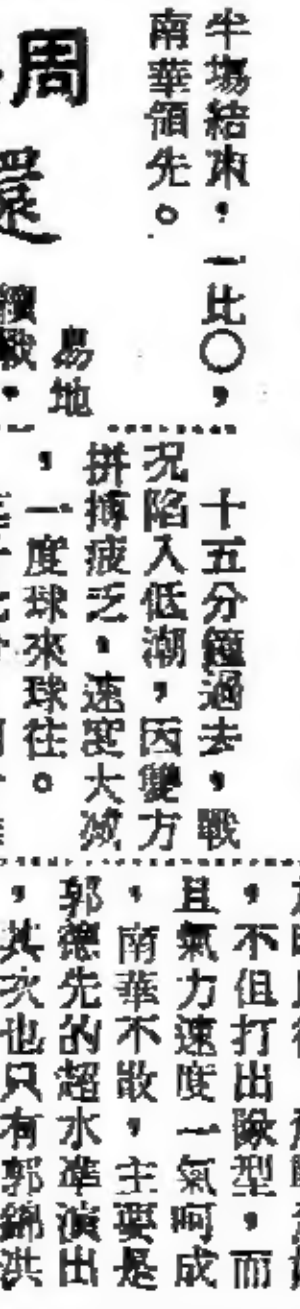 半場結束，一比〇，
南華領先。
周
還
易地
續戰，
十五分鐘過去，戰
況陷入低潮，因雙方
拼搏疲乏，速度大減
，一度球來球往。
，不但打出險型，而
且氣力速度一氣呵成
，南華不敢，主要是
郭德先的超水準演出
，其次也只有郭錦洪